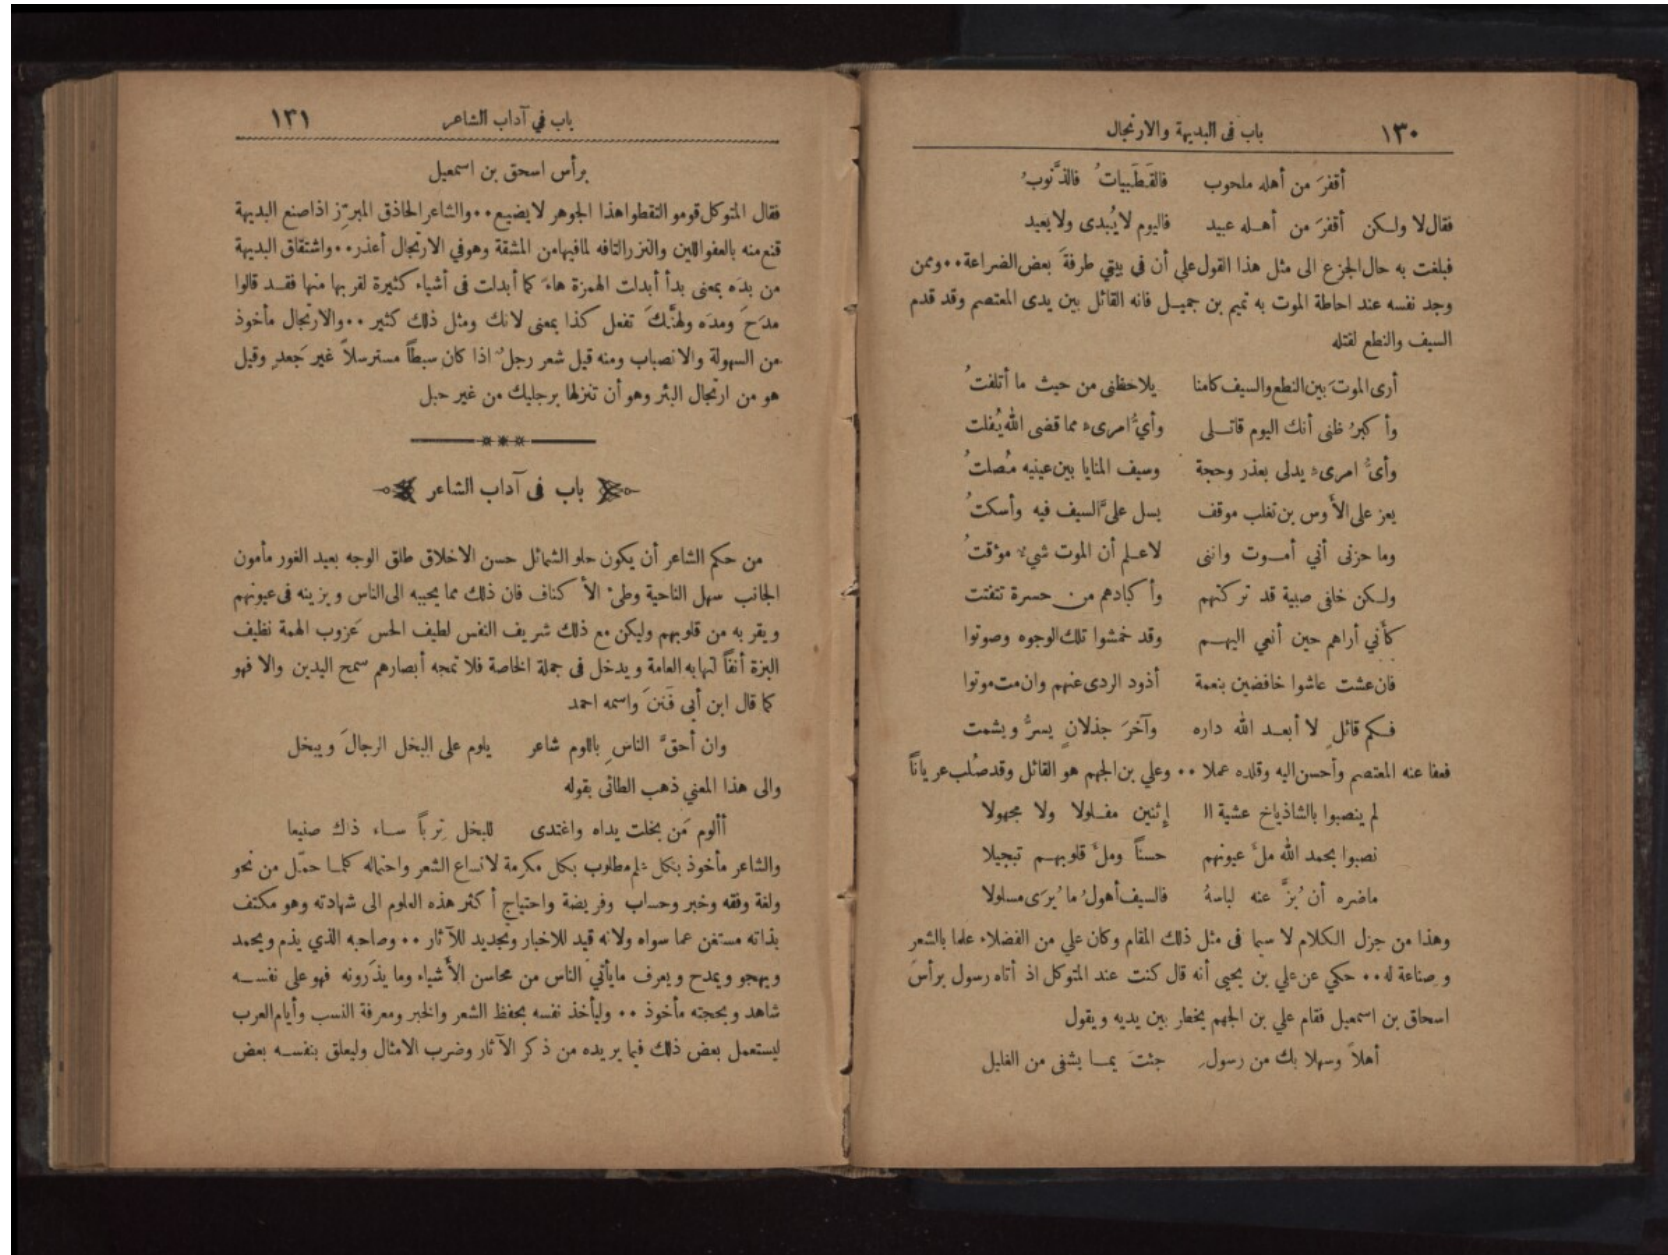 ١٣٠ باب فى البديهة والارتجال
أقفرَ من أهله ملحوب فالقَطَبيات ُ فالذَّنوب ُ
فقال لا ولـكن أقفرَ من أهـله عبيد فاليوم لا يُبدى ولا يعيد
فبلغت به حال الجزع الى مثل هذا القول على أن في بيتي طرفة َ بعض الضراعة •• وممن
وجد نفسه عند احاطة الموت به تميم بن جميـل فانه القائل بين يدى المعتصم وقد قدم
السيف والنطع لقتله
أرى الموت َ بين النطع والسيف كامنا يلاحظنى من حيث ما أتلفت ُ
وأ كبر ُ ظنى أنك اليوم قاتـلى وأي ُّ امرىء مما قضى الله يُفلت
وأى ُّ امرىء يدلى بعذر وحجة وسيف المنايا بين عينيه مُصلت ُ
يعز على الأوس بن تغلب موقف يسل علي َّ السيف فيه وأسكت ُ
وما حزنى أني أمـوت واننى لاعـلم أن الموت شيء موٴقت ُ
ولـكن خلفى صبية قد تركتهم وأ كبادهم من حسرة تتفتت
كأني أراهم حين أنعي اليهـم وقد خمشوا تلك الوجوه وصوتوا
فان عشت عاشوا خافضين بنعمة أذود الردى عنهم وان مت موتوا
فـكم قائل ٍ لا أبعـد الله داره وآخرَ جذلان ٍ يسر ُّ ويشمت
فعفا عنه المعتصم وأحسن اليه وقلده عملا •• وعلي بن الجهم هو القائل وقد صُلب عرياناً
لم ينصبوا بالشاذياخ عشية الـ إثنين مفـلولا ولا مجهولا
نصبوا بحمد الله ملٴ عيونهم حسناً وملٴ قلوبهـم تبجيلا
ماضره أن بُز َّ عنه لباسهُ فالسيف أهول ُ ما يُرَى مسلولا
وهذا من جزل الكلام لا سيما فى مثل ذلك المقام وكان علي من الفضلاء علما بالشعر
وصناعة له •• حكي عن علي بن يحيى أنه قال كنت عند المتوكل اذ أتاه رسول برأس
اسحاق بن اسمعيل فقام علي بن الجهم يخطر بين يديه ويقول
أهلاً وسهلا بك من رسول ِ جئت َ بمـا يشفى من الغليل
باب في آداب الشاعر ١٣١
برأس اسحق بن اسمعيل
فقال المتوكل قومو التقطوا هذا الجوهر لا يضيع •• والشاعر الحاذق المبرِّز اذا صنع البديهة
قنع منه بالعفو اللين والنزر التافه لما فيها من المشقة وهو في الارتجال أعذر •• واشتقاق البديهة
من بدَه بمعنى بدأ أبدلت الهمزة هاءً كما أبدلت فى أشياء كثيرة لقربها منها فقـد قالوا
مدَح َ ومدَه ولهنَّك َ تفعل كذا بمعنى لانك ومثل ذلك كثير •• والارتجال مأخوذ
من السهولة والانصباب ومنه قيل شعر رجل ٌ اذا كان سبطاً مسترسلاً غير جَعد ٍ وقيل
هو من ارتجال البئر وهو أن تنزلها برجليك من غير حبل
باب فى آداب الشاعر
من حكم الشاعر أن يكون حلو الشمائل حسن الاخلاق طلق الوجه بعيد الغور مأمون
الجانب سهل الناحية وطئ الأ كناف فان ذلك مما يحببه الى الناس ويزينه فى عيونهم
ويقربه من قلوبهم وليكن مع ذلك شريف النفس لطيف الحس عَزوب الهمة نظيف
البزة أنفاً لتهابه العامة ويدخل فى جملة الخاصة فلا تمجه أبصارهم سمح اليدين والا فهو
كما قال ابن أبي فَنَن َ واسمه احمد
وان أحق َّ الناس ِ باللوم شاعر يلوم على البخل الرجال َ ويبخل
والى هذا المعني ذهب الطائى بقوله
أألوم مَن بخلت يداه واغتدى للبخل تِرباً سـاء ذاك صنيعا
والشاعر مأخوذ بكل علم مطلوب بكل مكرمة لاتساع الشعر واحتماله كلمـا حمّل من نحو
ولغة وفقه وخبر وحساب وفريضة واحتياج أ كثر هذه العلوم الى شهادته وهو مكتف
بذاته مستغن عما سواه ولانه قيد للاخبار وتجديد للآثار •• وصاحبه الذي يذم ويحمد
ويهجو ويمدح ويعرف مايأتي الناس من محاسن الأشياء وما يذَرونه فهو على نفسـه
شاهد وبحجته مأخوذ •• وليأخذ نفسه بحفظ الشعر والخبر ومعرفة النسب وأيام العرب
ليستعمل بعض ذلك فيما يريده من ذكر الآثار وضرب الامثال وليعلق بنفسـه بعض